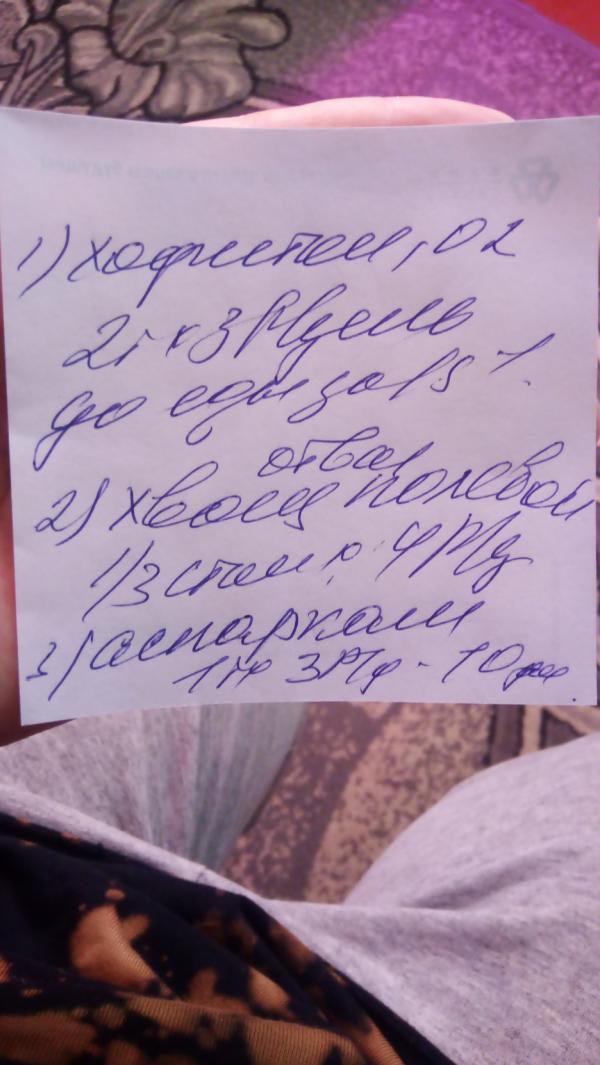 1) Хофитол, 0,2
2т х 3 Р/день
до еды за 15
отвар
2) Хвощ полевой
1/3 стак. 4 Р/д
3) Аспаркам
1т 3Р/д - 10 дн.